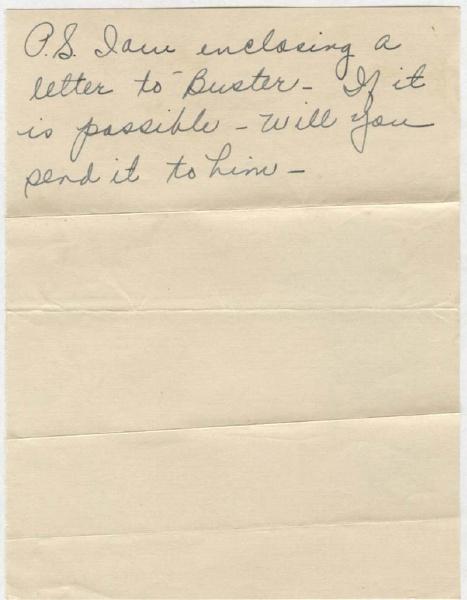 P.S. I am enclosing a
letter to Buster - If it
is possible - Will you
send it to him -